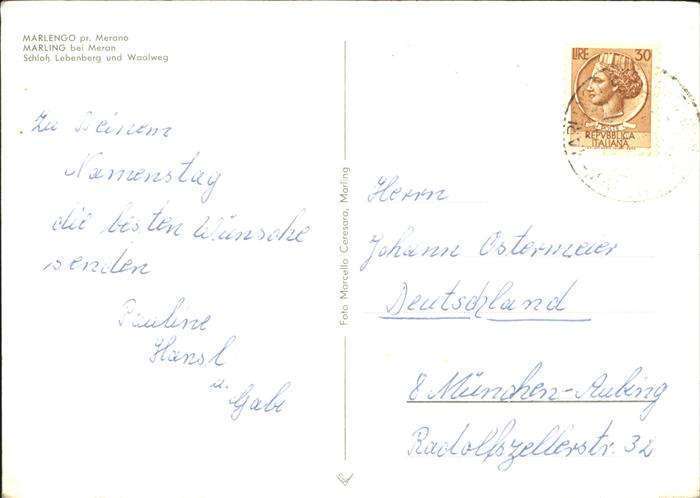 MARLENGO pr. Merano
MARLING bei Meran
Schloß Lebenberg und Waalweg
Zu Deinem
Namenstag
die besten Wünsche
senden
Pauline
Hansl
u.
Gabi
Foto Marcello Ceresara, Marling
LIRE 30
REPVBBLICA
ITALIANA
Herrn
Johann Ostermeier
Deutschland
8 München-Aubing
Radolfszellerstr. 32